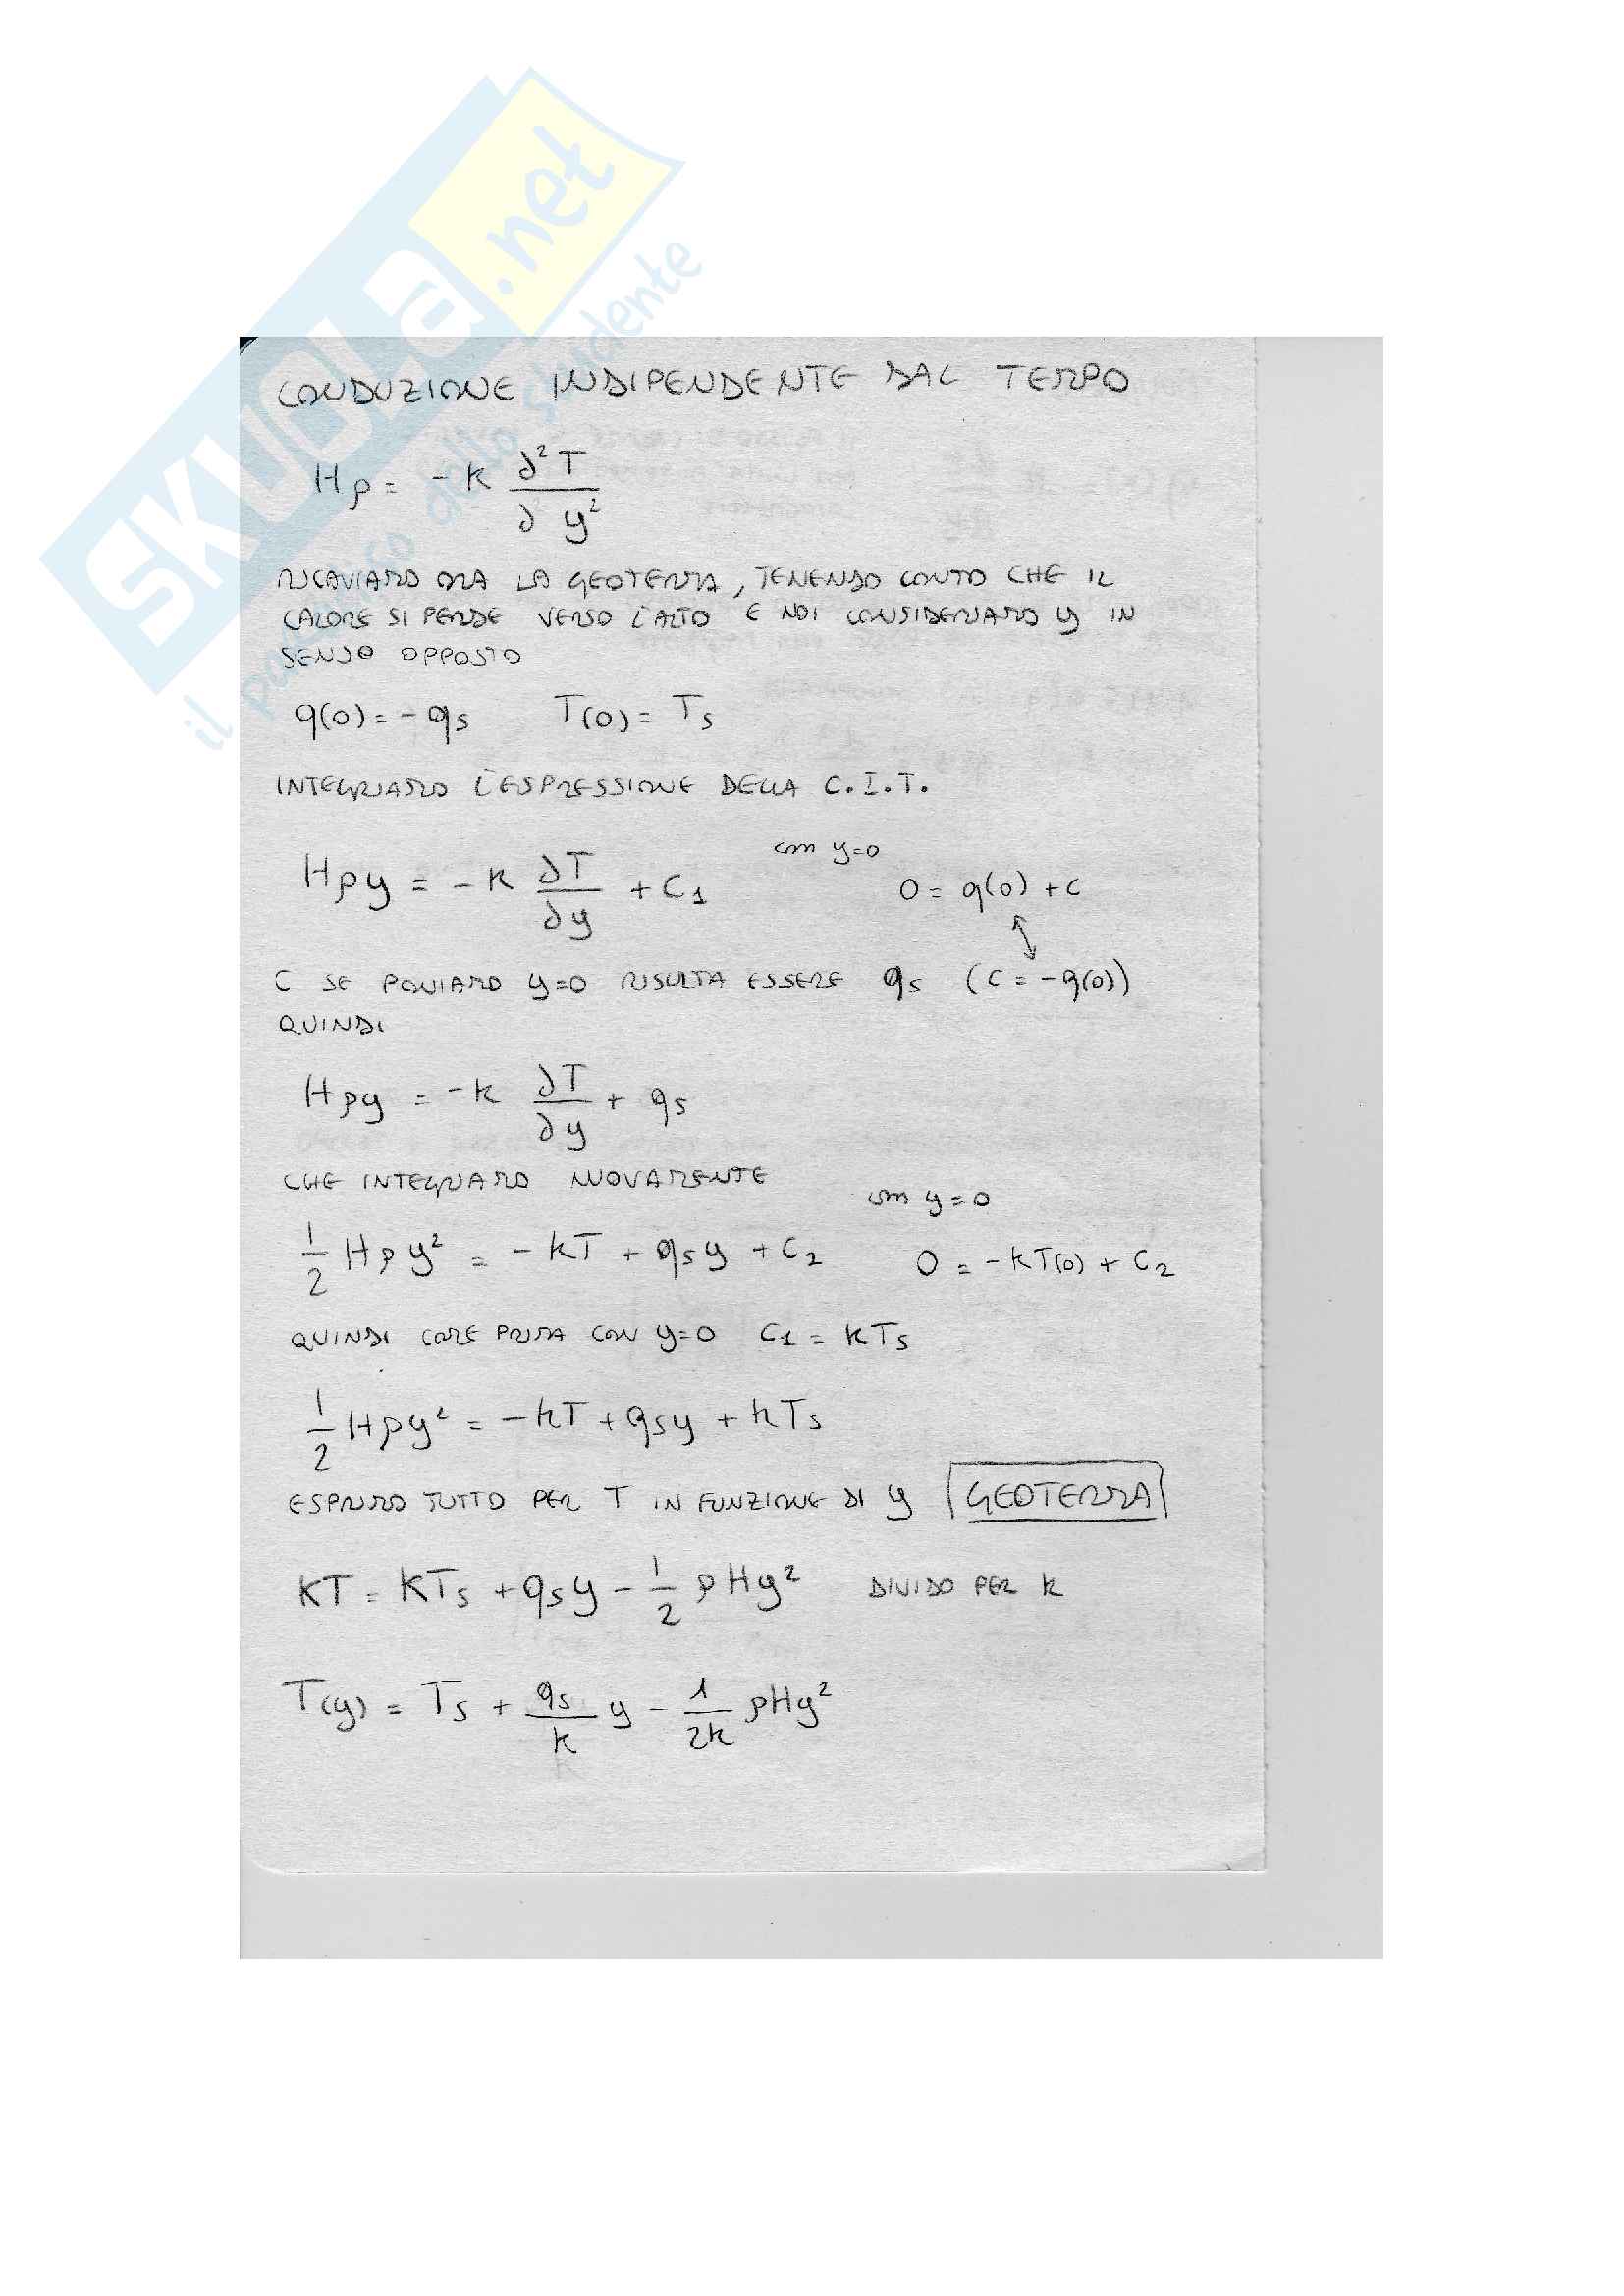 SKUOLA.net
il paradiso dello studente
CONDUZIONE INDIPENDENTE DAL TEMPO
Hρ = -k ∂²T / ∂y²
RICAVIAMO ORA LA GEOTERMA, TENENDO CONTO CHE IL
CALORE SI PERDE VERSO L'ALTO E NOI CONSIDERIAMO y IN
SENSO OPPOSTO
q(0) = -qs T(0) = Ts
INTEGRIAMO L'ESPRESSIONE DELLA C.I.T.
con y=0
Hρy = -k ∂T/∂y + C1 0 = q(0) + C
C SE PONIAMO y=0 RISULTA ESSERE qs (C = -q(0))
QUINDI
Hρy = -k ∂T/∂y + qs
CHE INTEGRIAMO NUOVAMENTE
con y=0
1/2 Hρy² = -kT + qsy + C2 0 = -kT(0) + C2
QUINDI COME PRIMA CON y=0 C1 = kTs
1/2 Hρy² = -kT + qsy + kTs
ESPRIMO TUTTO PER T IN FUNZIONE DI y GEOTERMA
KT = KTs + qsy - 1/2 ρHy² DIVIDO PER k
T(y) = Ts + qs/k y - 1/2k ρHy²